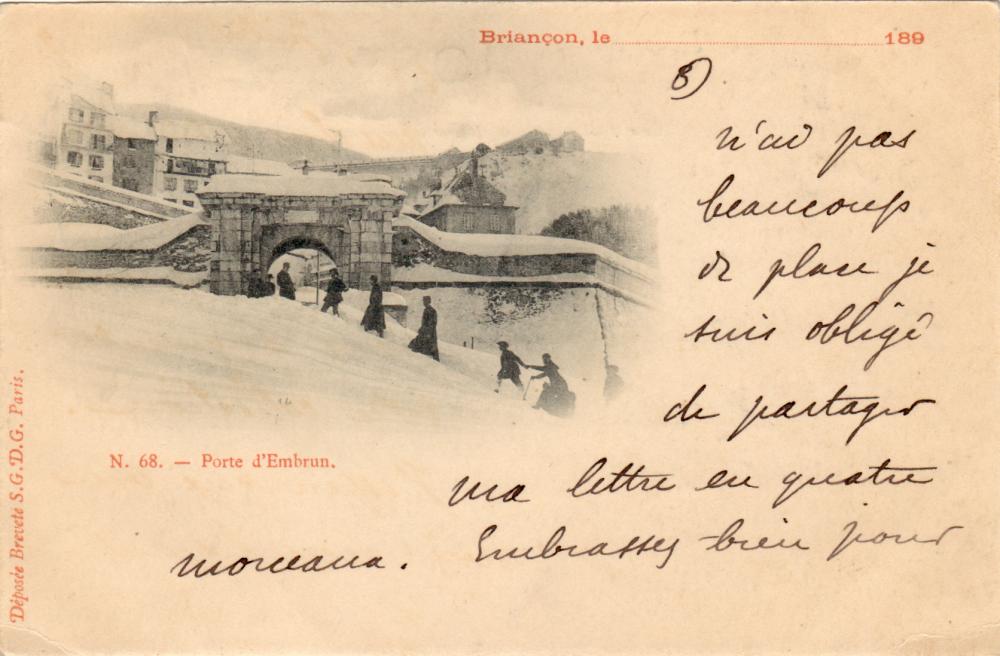 Briançon, le 189
8)
n'ai pas
beaucoup
de place je
suis obligé
de partager
ma lettre en quatre
morceaux. Embrassez bien pour
N. 68. — Porte d'Embrun.
Déposée Breveté S.G.D.G. Paris.